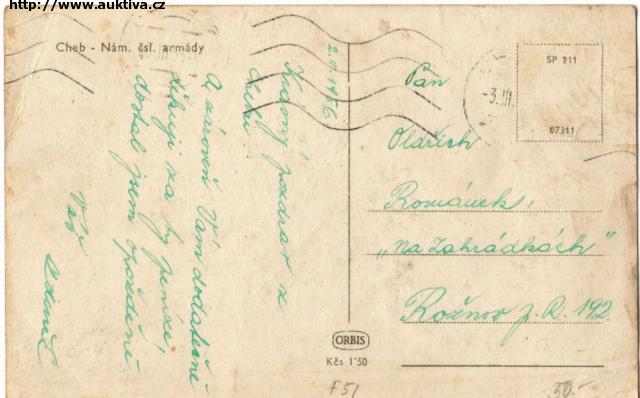 http://www.auktiva.cz
Cheb - Nám. čsl. armády
2.III.1956
Krásný pozdrav z
Chebu
A zároveň Vám dodatečně
děkuji za ty peníze,
dostal jsem opožděně
Váš
-3.III.
SP 211
07311
Pan
Oldřich
Románek,
"Na Zahrádkách"
Rožnov p. R. 192
ORBIS
Kčs 1'50
F51
50.-